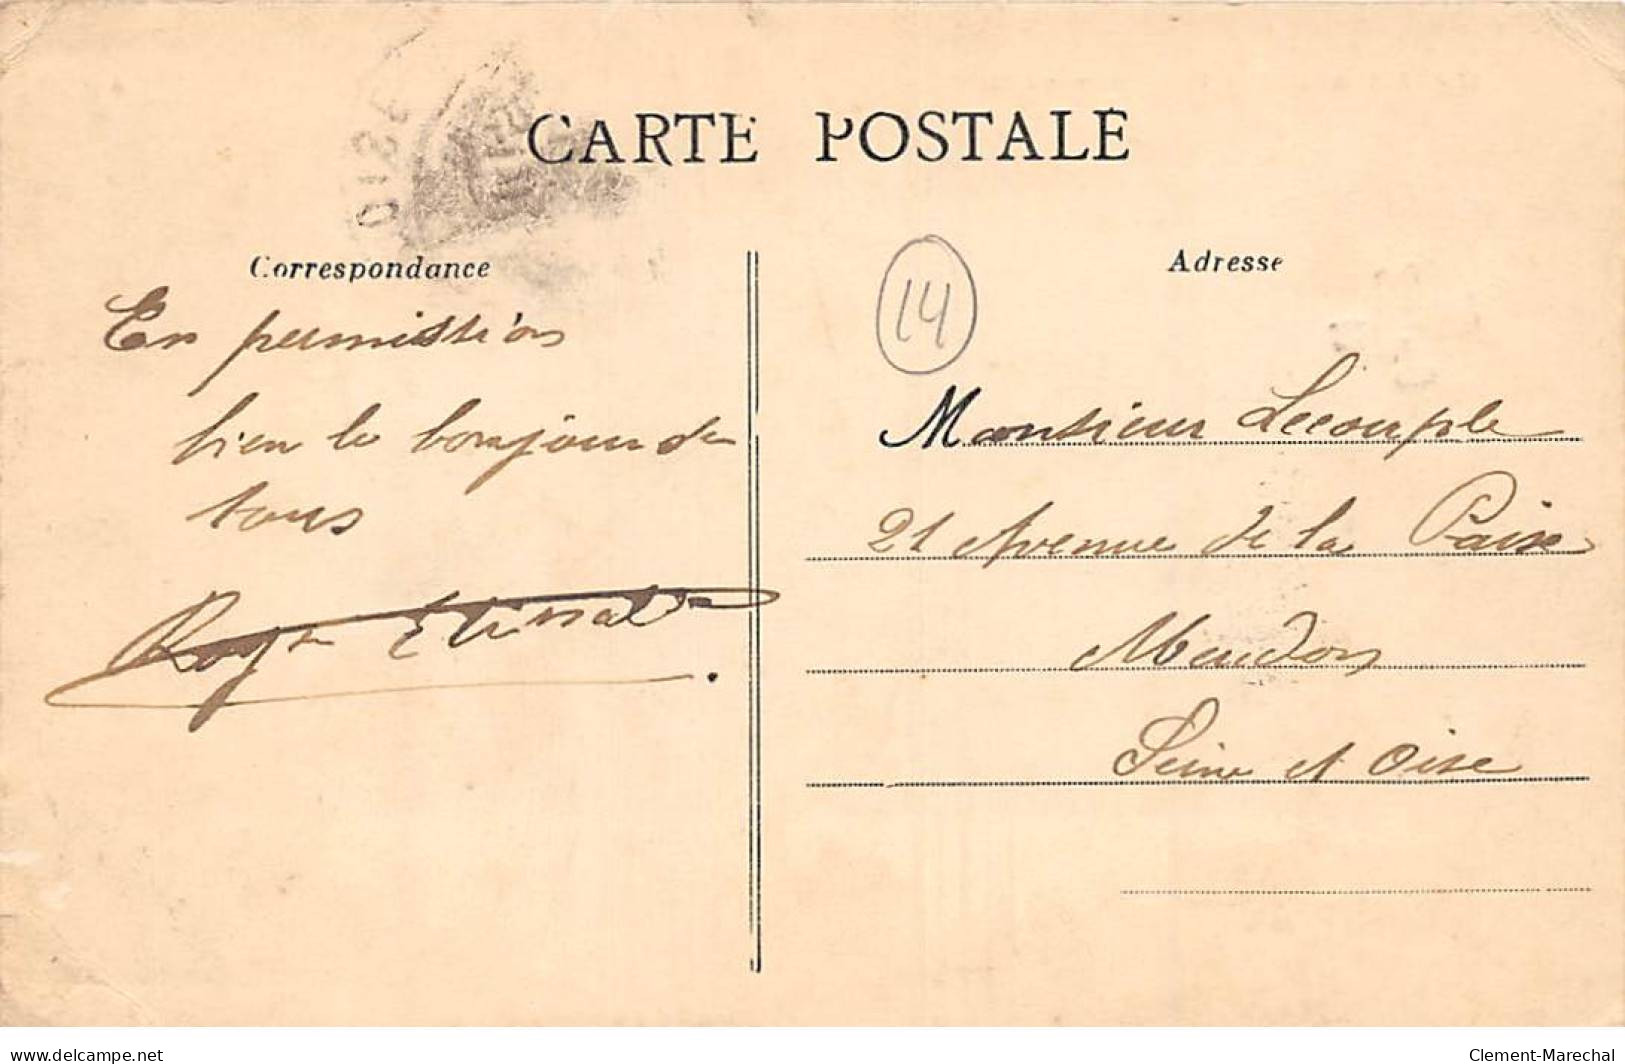 CARTE POSTALE
Correspondance
Adresse
14
En permission
bien le bonjour de
tous
Monsieur Lecouple
21 Avenue de la Paix
Meudon
Seine et Oise
OISE
delcampe.net
Clement-Marechal